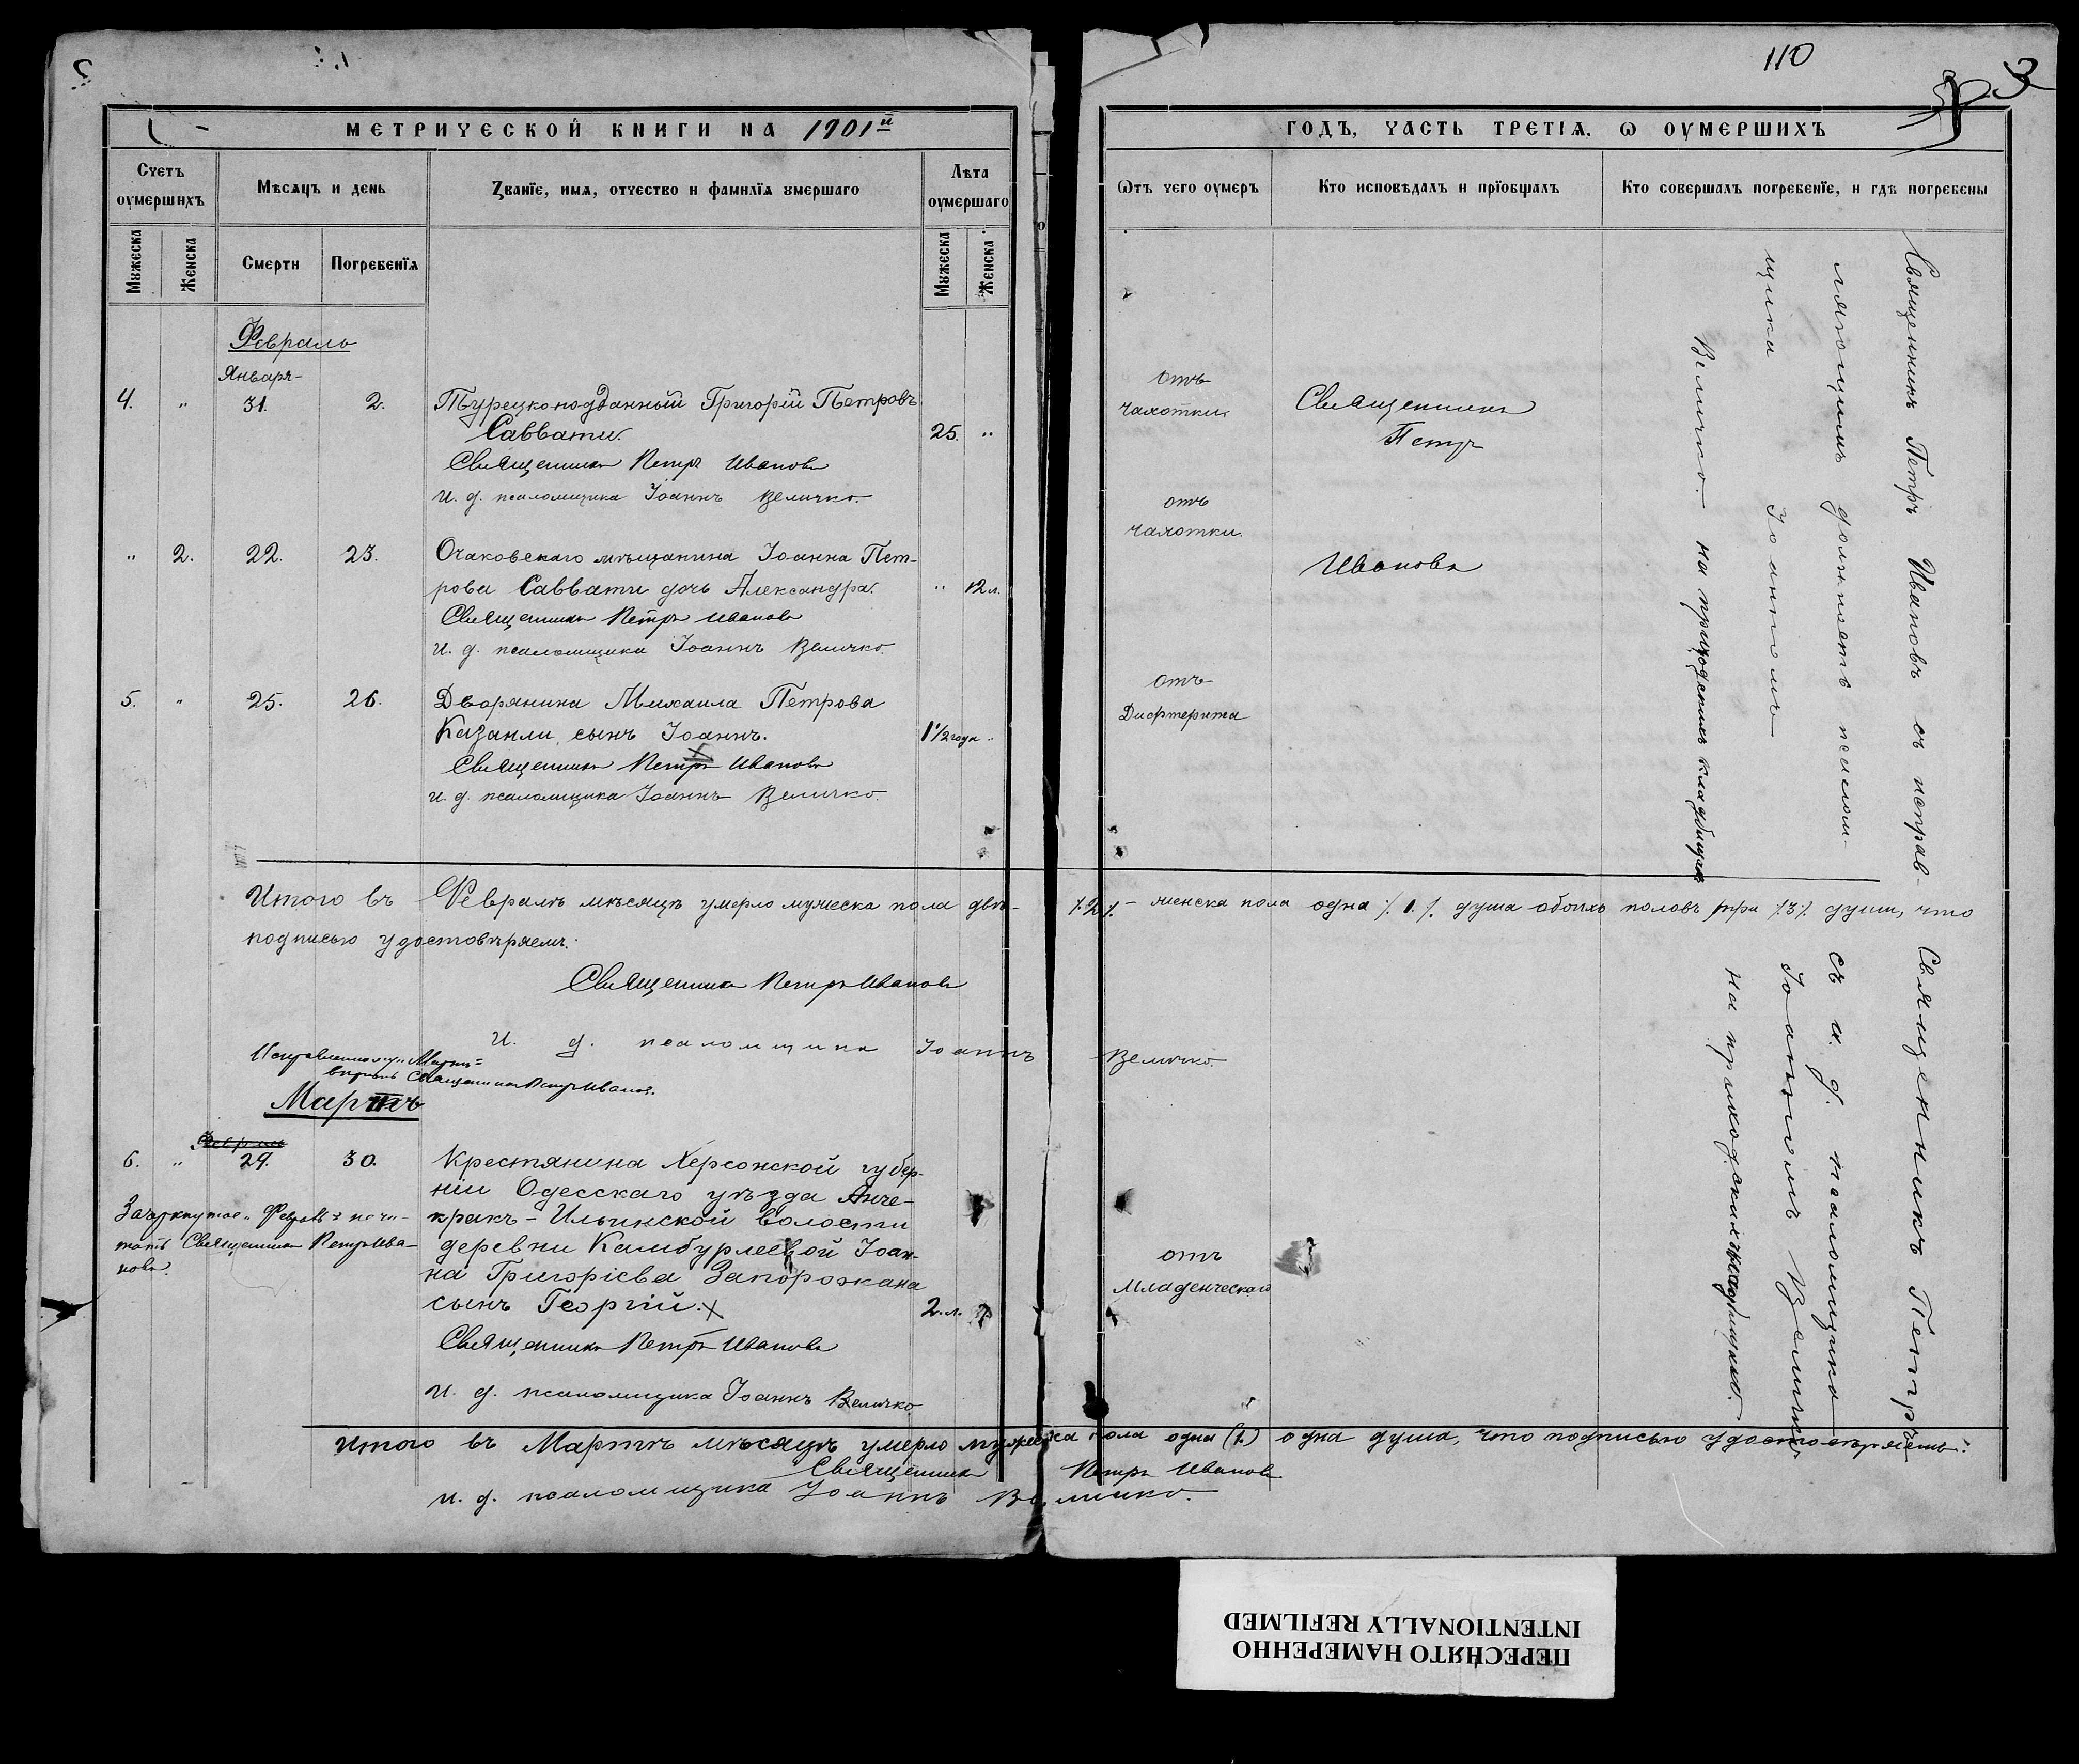 110
3
МЕТРИЧЕСКОЙ КНИГИ НА 1901й
ГОДЪ, ЧАСТЬ ТРЕТІЯ. Ѡ ОУМЕРШИХЪ
Счетъ оумершихъ
Мѣсяцъ и день
Званїе, имя, отчество и фамилїя умершаго
Лѣта оумершаго
Мужеска
Женска
Смерти
Погребенїя
Мужеска
Женска
Ѡтъ чего оумеръ
Кто исповѣдалъ и прїобщалъ
Кто совершалъ погребенїе, и гдѣ погребены
Февраль
Января
4. " 31. 2. Турецкоподданный Григорій Петровъ
Саввати. 25. "
Священникъ Петръ Ивановъ
И. д. псаломщика Іоаннъ Величко.
отъ
чахотки.
Священникъ
Петръ
" 2. 22. 23. Очаковскаго мѣщанина Іоанна Пет-
рова Саввати дочь Александра. " 12 л.
Священникъ Петръ Ивановъ
И. д. псаломщика Іоаннъ Величко.
отъ
чахотки.
Ивановъ
5. " 25. 26. Дворянина Михаила Петрова
Казанли сынъ Іоаннъ. 1½ года "
Священникъ Петръ Ивановъ
И. д. псаломщика Іоаннъ Величко.
отъ
Дифтерита
Священникъ Петръ Ивановъ съ исправ-
ляющимъ должность псалом-
щика Іоанномъ
Величко. на приходскомъ кладбищѣ.
Итого въ Февралѣ мѣсяцѣ умерло мужеска пола двѣ ·/.2./· женска пола одна ·/.1./· душа обоихъ половъ три ·/.3./· души, что
подписью удостовѣряемъ:
Священникъ Петръ Ивановъ
И. д. псаломщика Іоаннъ Величко.
Исправленному "Мартъ"
вѣрить Священникъ Петръ Ивановъ.
Мартъ
Февраль
6. " 29. 30. Крестянина Херсонской губер-
ніи Одесскаго уѣзда Анче-
кракъ-Ильинской волости
деревни Камбурлеевой Іоан-
на Григоріева Запорожана
сынъ Георгій. 2. л. "
Священникъ Петръ Ивановъ
И. д. псаломщика Іоаннъ Величко.
Зачеркнутое "Февраль" не чи-
тать Священникъ Петръ Ива-
новъ.
отъ
Младенческаго
Священникъ Петръ
съ и. д. псаломщика
Іоанномъ Величко
на приходскомъ кладбищѣ.
Итого въ Мартѣ мѣсяцѣ умерло мужеска пола одна (1.) одна душа, что подписью удостовѣряемъ:
Священникъ Петръ Ивановъ.
И. д. псаломщика Іоаннъ Величко.
ПЕРЕСНЯТО НАМЕРЕННО
INTENTIONALLY REFILMED